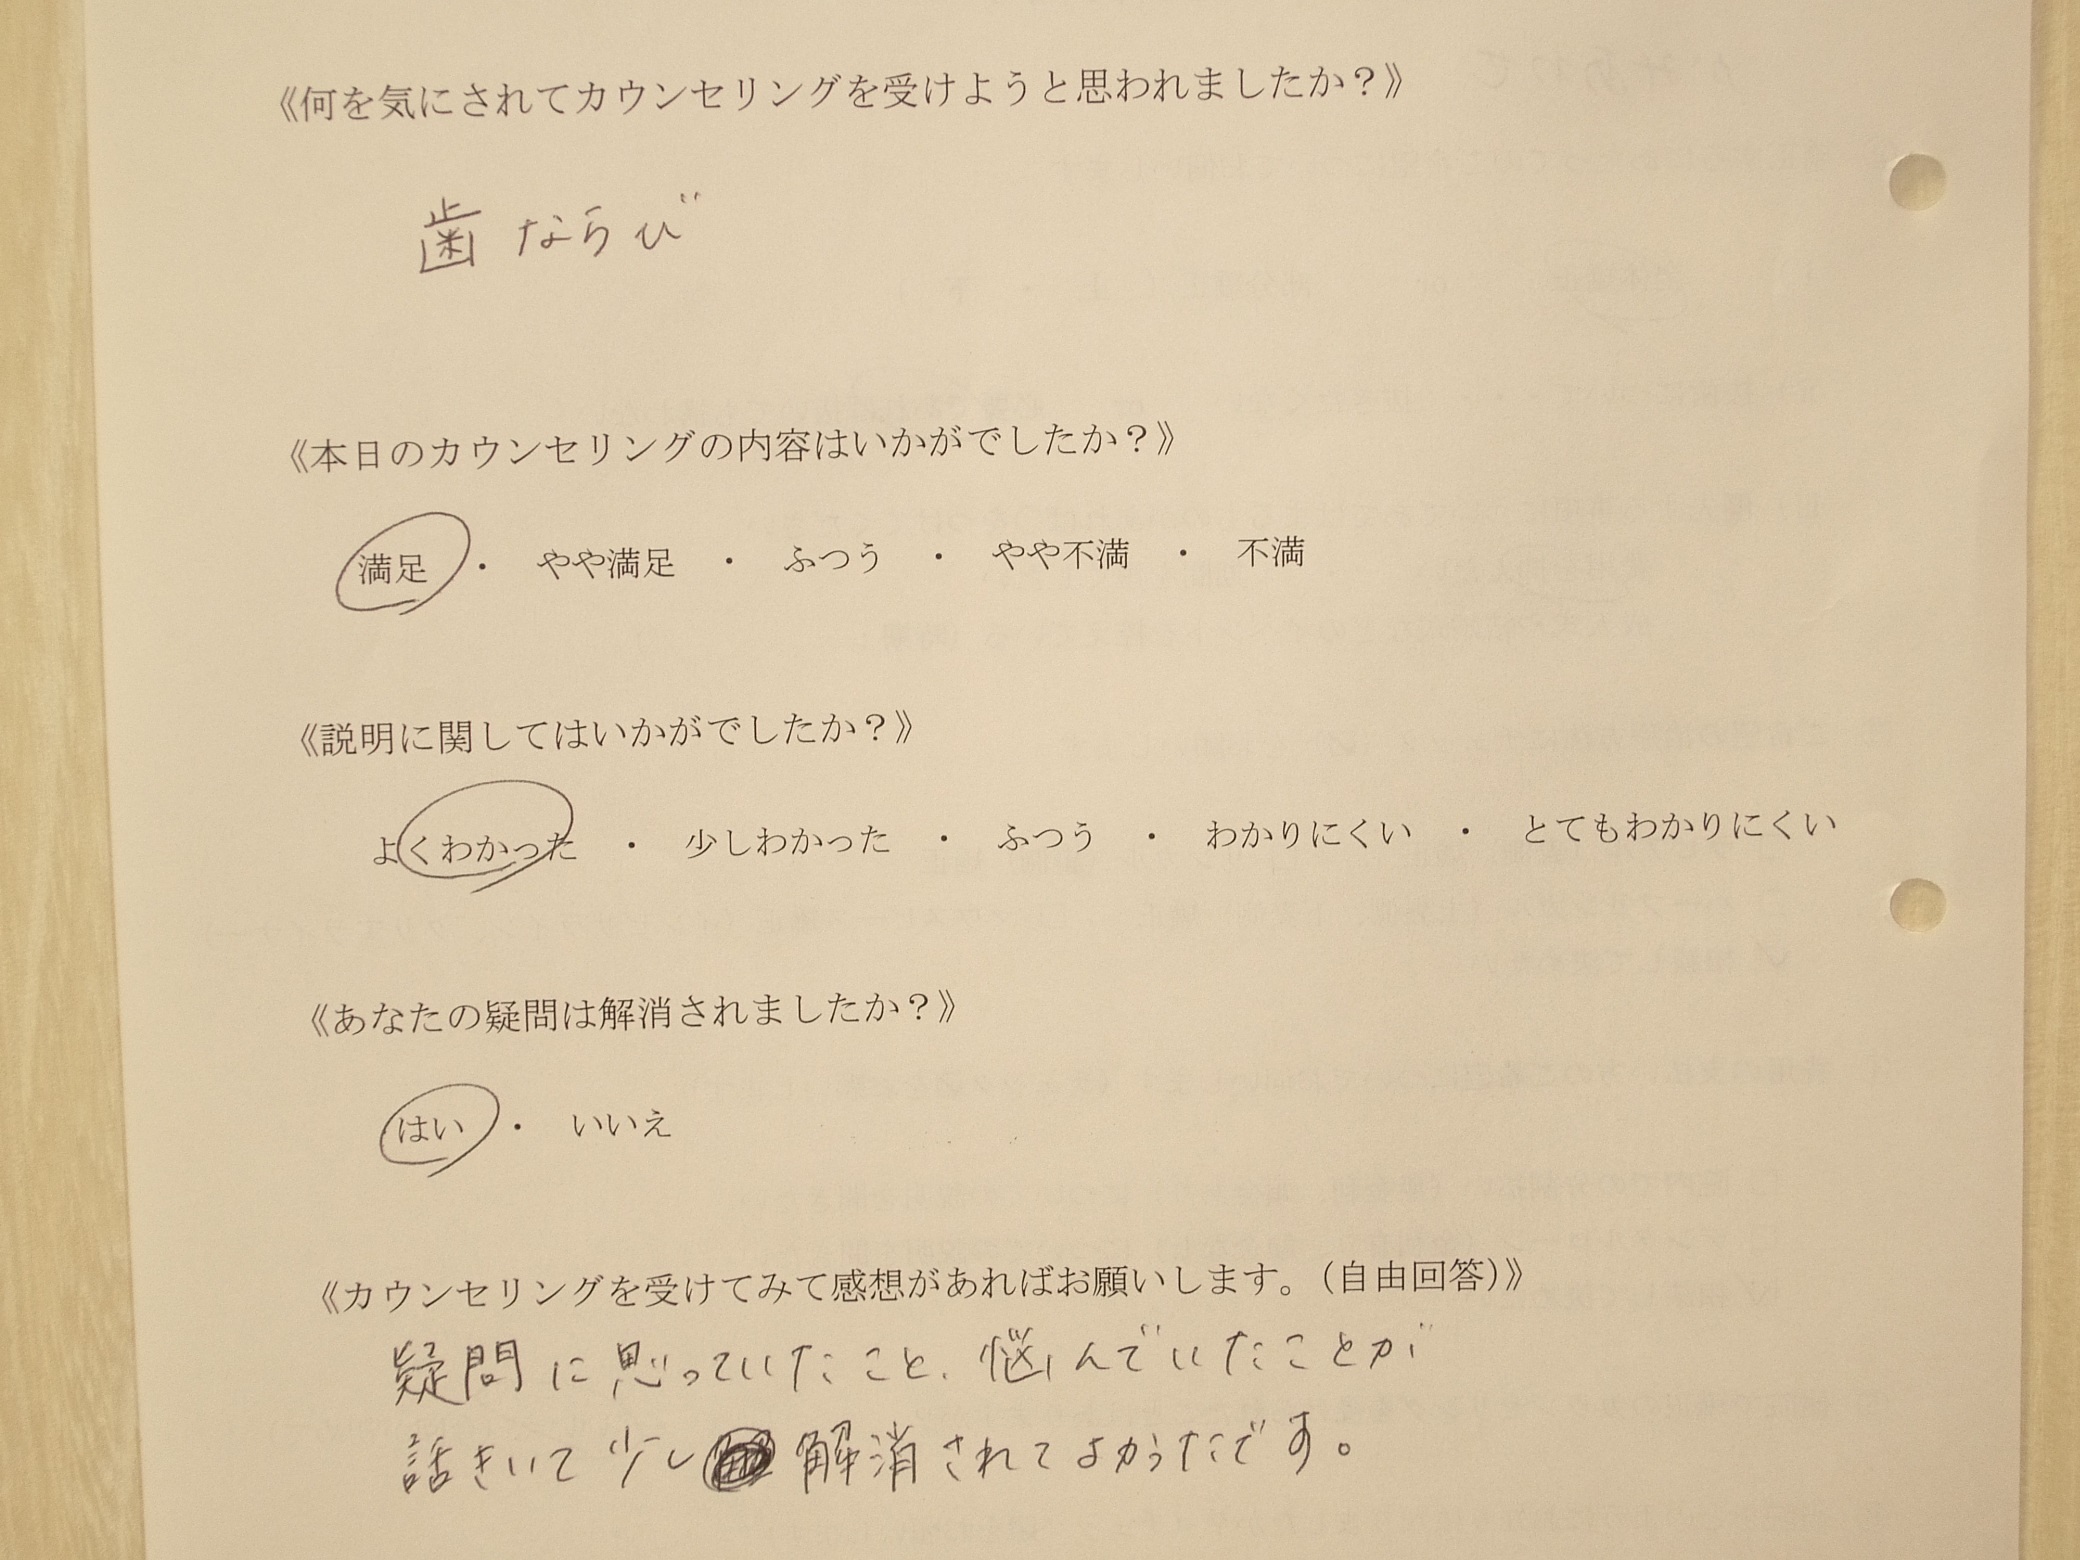 《何を気にされてカウンセリングを受けようと思われましたか？》
歯ならび
《本日のカウンセリングの内容はいかがでしたか？》
満足 ・ やや満足 ・ ふつう ・ やや不満 ・ 不満
《説明に関してはいかがでしたか？》
よくわかった ・ 少しわかった ・ ふつう ・ わかりにくい ・ とてもわかりにくい
《あなたの疑問は解消されましたか？》
はい ・ いいえ
《カウンセリングを受けてみて感想があればお願いします。（自由回答）》
疑問に思っていたこと、悩んでいたことが
話きいて少し解消されてよかったです。